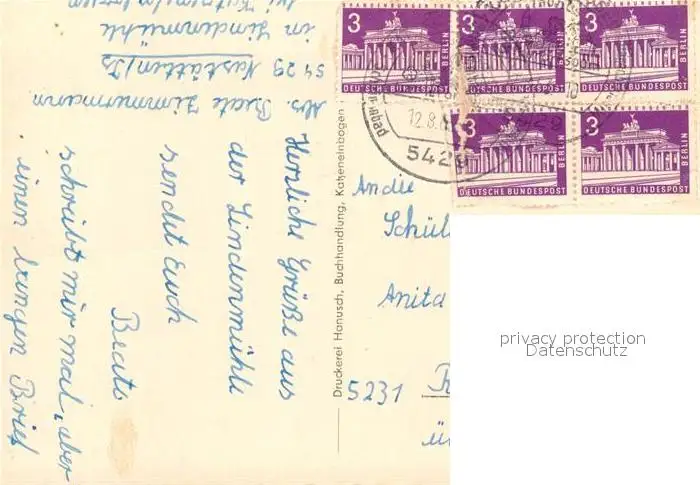 Abs. Beate Zimmermann
5429 Nastätten/Ts
in Lindenmühle
Herzliche Grüße aus
der Lindenmühle
sendet Euch
Beate
schreibt mir mal, aber
einen langen Brief
Druckerei Hanusch, Buchhandlung, Katzenelnbogen
An die
Schül
Anita
5231
3
BRANDENBURGER TOR
BERLIN
DEUTSCHE BUNDESPOST
3
BERLIN
DEUTSCHE BUNDESPOST
3
BERLIN
DEUTSCHE BUNDESPOST
3
BERLIN
DEUTSCHE BUNDESPOST
3
BERLIN
DEUTSCHE BUNDESPOST
12.8.
5429
privacy protection
Datenschutz